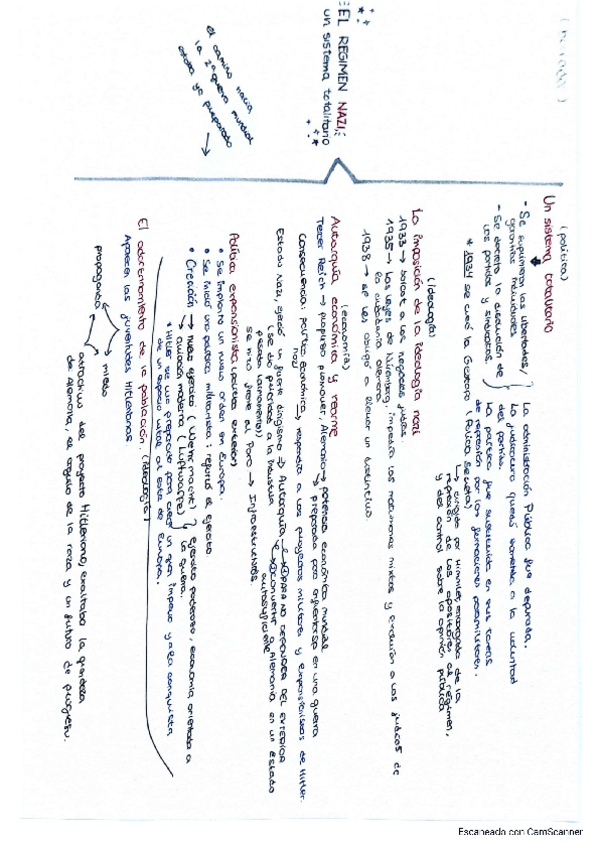 EL REGIMEN NAZI:
un sistema totalitario
el camino hacia
la 2ª guerra mundial
estaba ya preparado
(política)
Un sistema totalitario
- Se suprimieron las libertades/
garantías individuales
- Se decreta la disolución de
los partidos y sindicatos
La administración Pública fue depurada.
La judicatura quedó sometida a la voluntad
del partido.
La policía fue sustituida en sus tareas
de represión por las formaciones paramilitares.
* 1934 se creó la Gestapo (Policía Secreta)
dirigida por Himmler, encargada de la
represión de los opositores al régimen,
y del control sobre la opinión pública
(ideología)
La imposición de la ideología nazi
1933 → boicot a los negocios judíos.
1935 → las leyes de Núremberg, impedía los matrimonios mixtos y excluían a los judíos de
la ciudadanía alemana.
1938 → se les obligó a llevar un distintivo
(economía)
Autarquía económica y rearme
Tercer Reich → propuso promover Alemania → potencia económica mundial
→ preparada para enfrentarse en una guerra
Consecuencia: política económica, respondía a los proyectos militares y expansionistas de Hitler
nazi
Estado Nazi, ejerció un fuerte dirigismo → Autarquía → ① PARA NO DEPENDER DEL EXTERIOR
(se dio prioridad a la industria
pesada (armamento))
② convertir a Alemania en un estado
autosuficiente
se hizo frente al Paro → Infraestructuras
Política expansionista (política exterior)
• Se implantó un nuevo orden en Europa.
• Se inició una política militarista, reforzó el ejército
• Creación → nuevo ejército (Wehrmacht)
→ aviación moderna (Luftwaffe)
ejército poderoso, economía orientada a
la guerra.
* Hitler se vio preparado para crear un gran imperio y a la conquista
de un espacio vital al este de Europa.
El adoctrinamiento de la población. (ideología)
Aparecen las juventudes Hitlerianas
propaganda
miedo
atractivo del proyecto Hitleriano, exaltaba la grandeza
de Alemania, el orgullo de la raza y un futuro de progreso.
Escaneado con CamScanner